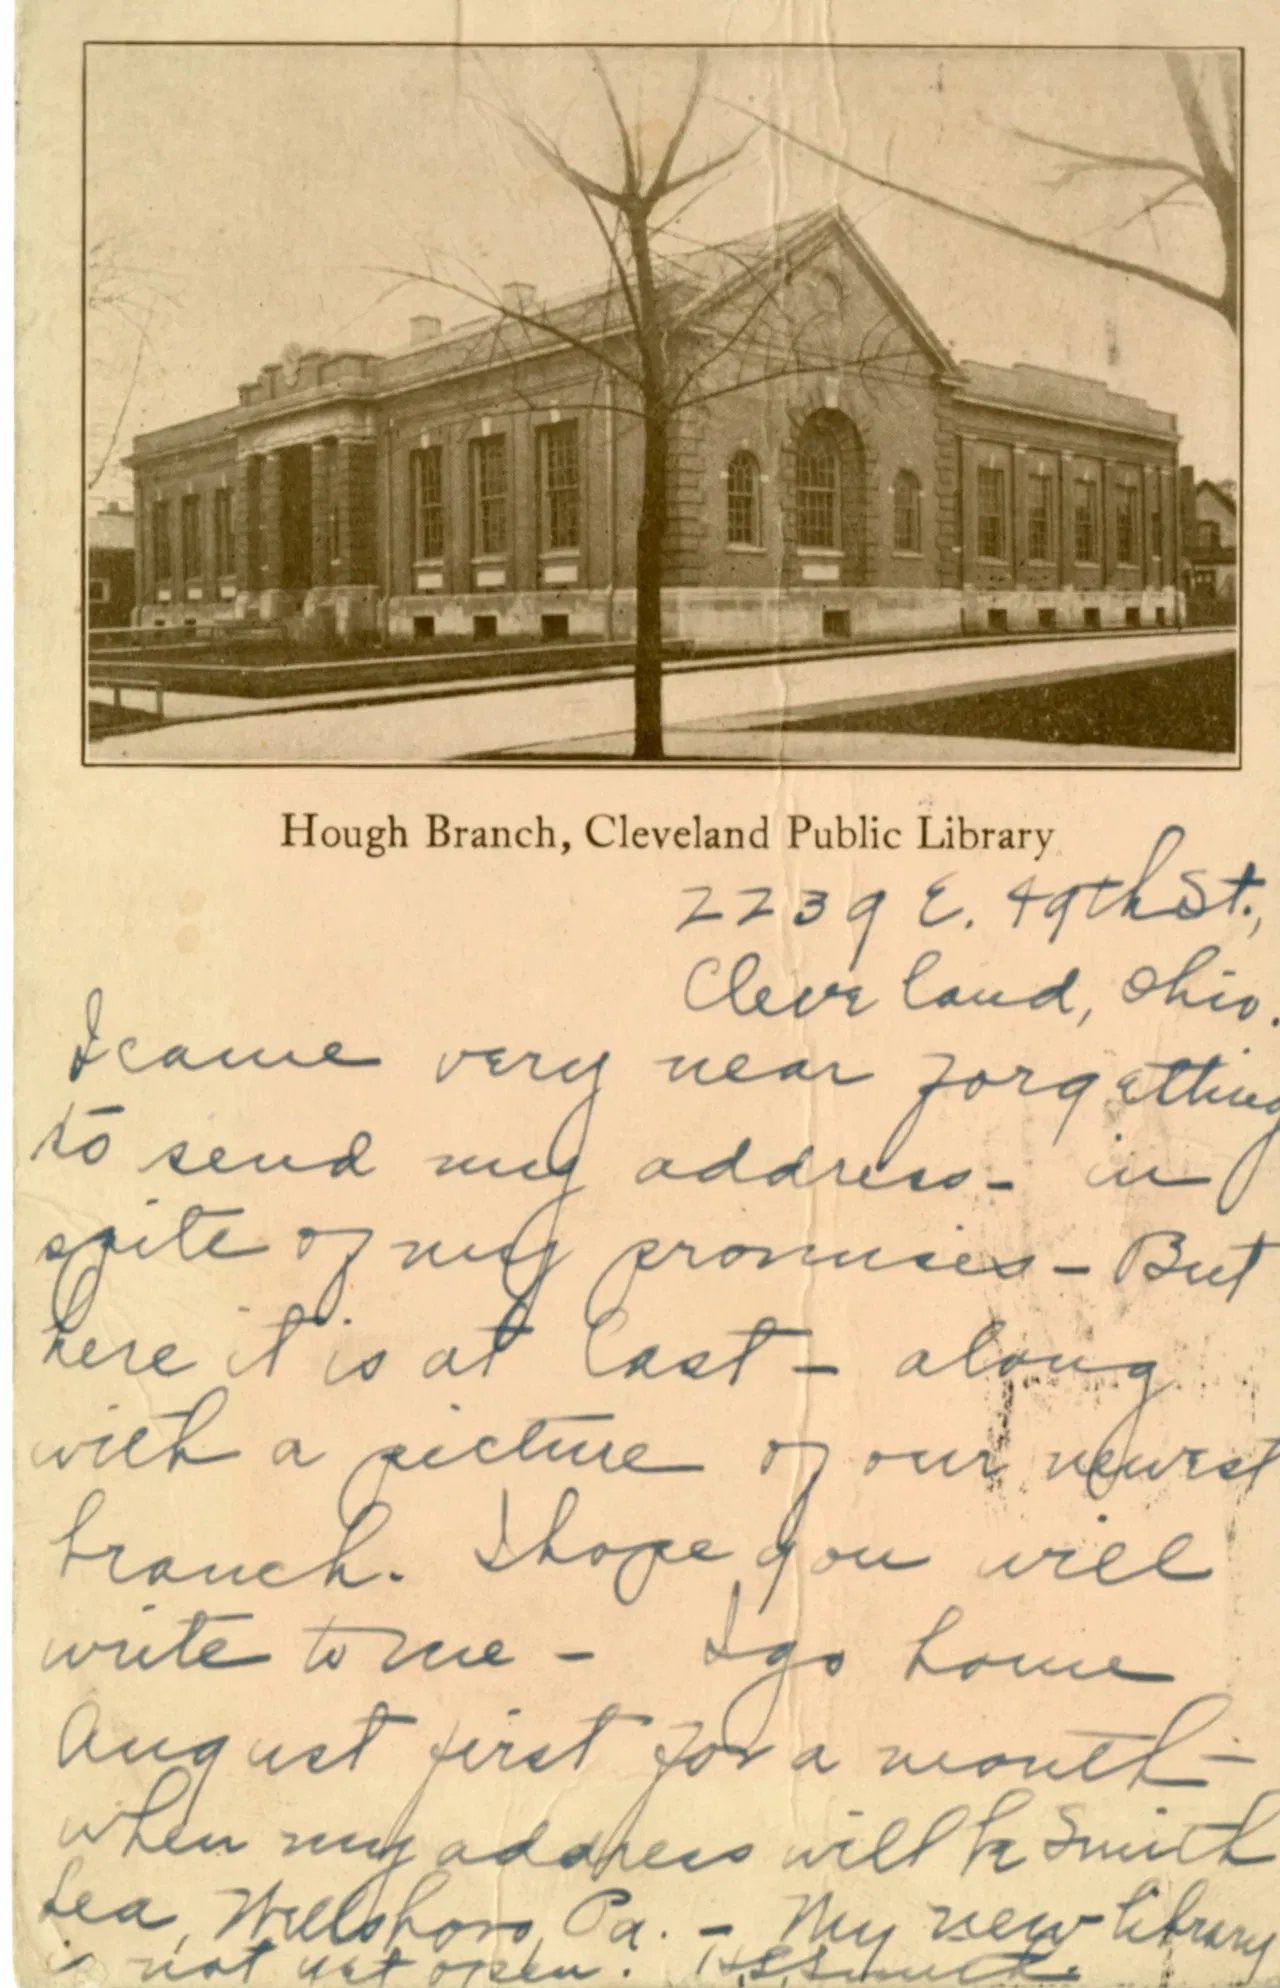 Hough Branch, Cleveland Public Library
2239 E. 49th St.,
Cleveland, Ohio.
I came very near forgetting
to send my address - in
spite of my promises - But
here it is at last - along
with a picture of our newest
branch. I hope you will
write to me - I go home
August first for a month -
when my address will be Smith
Lea, Wellsboro, Pa. - My new library
is not yet open. Smith